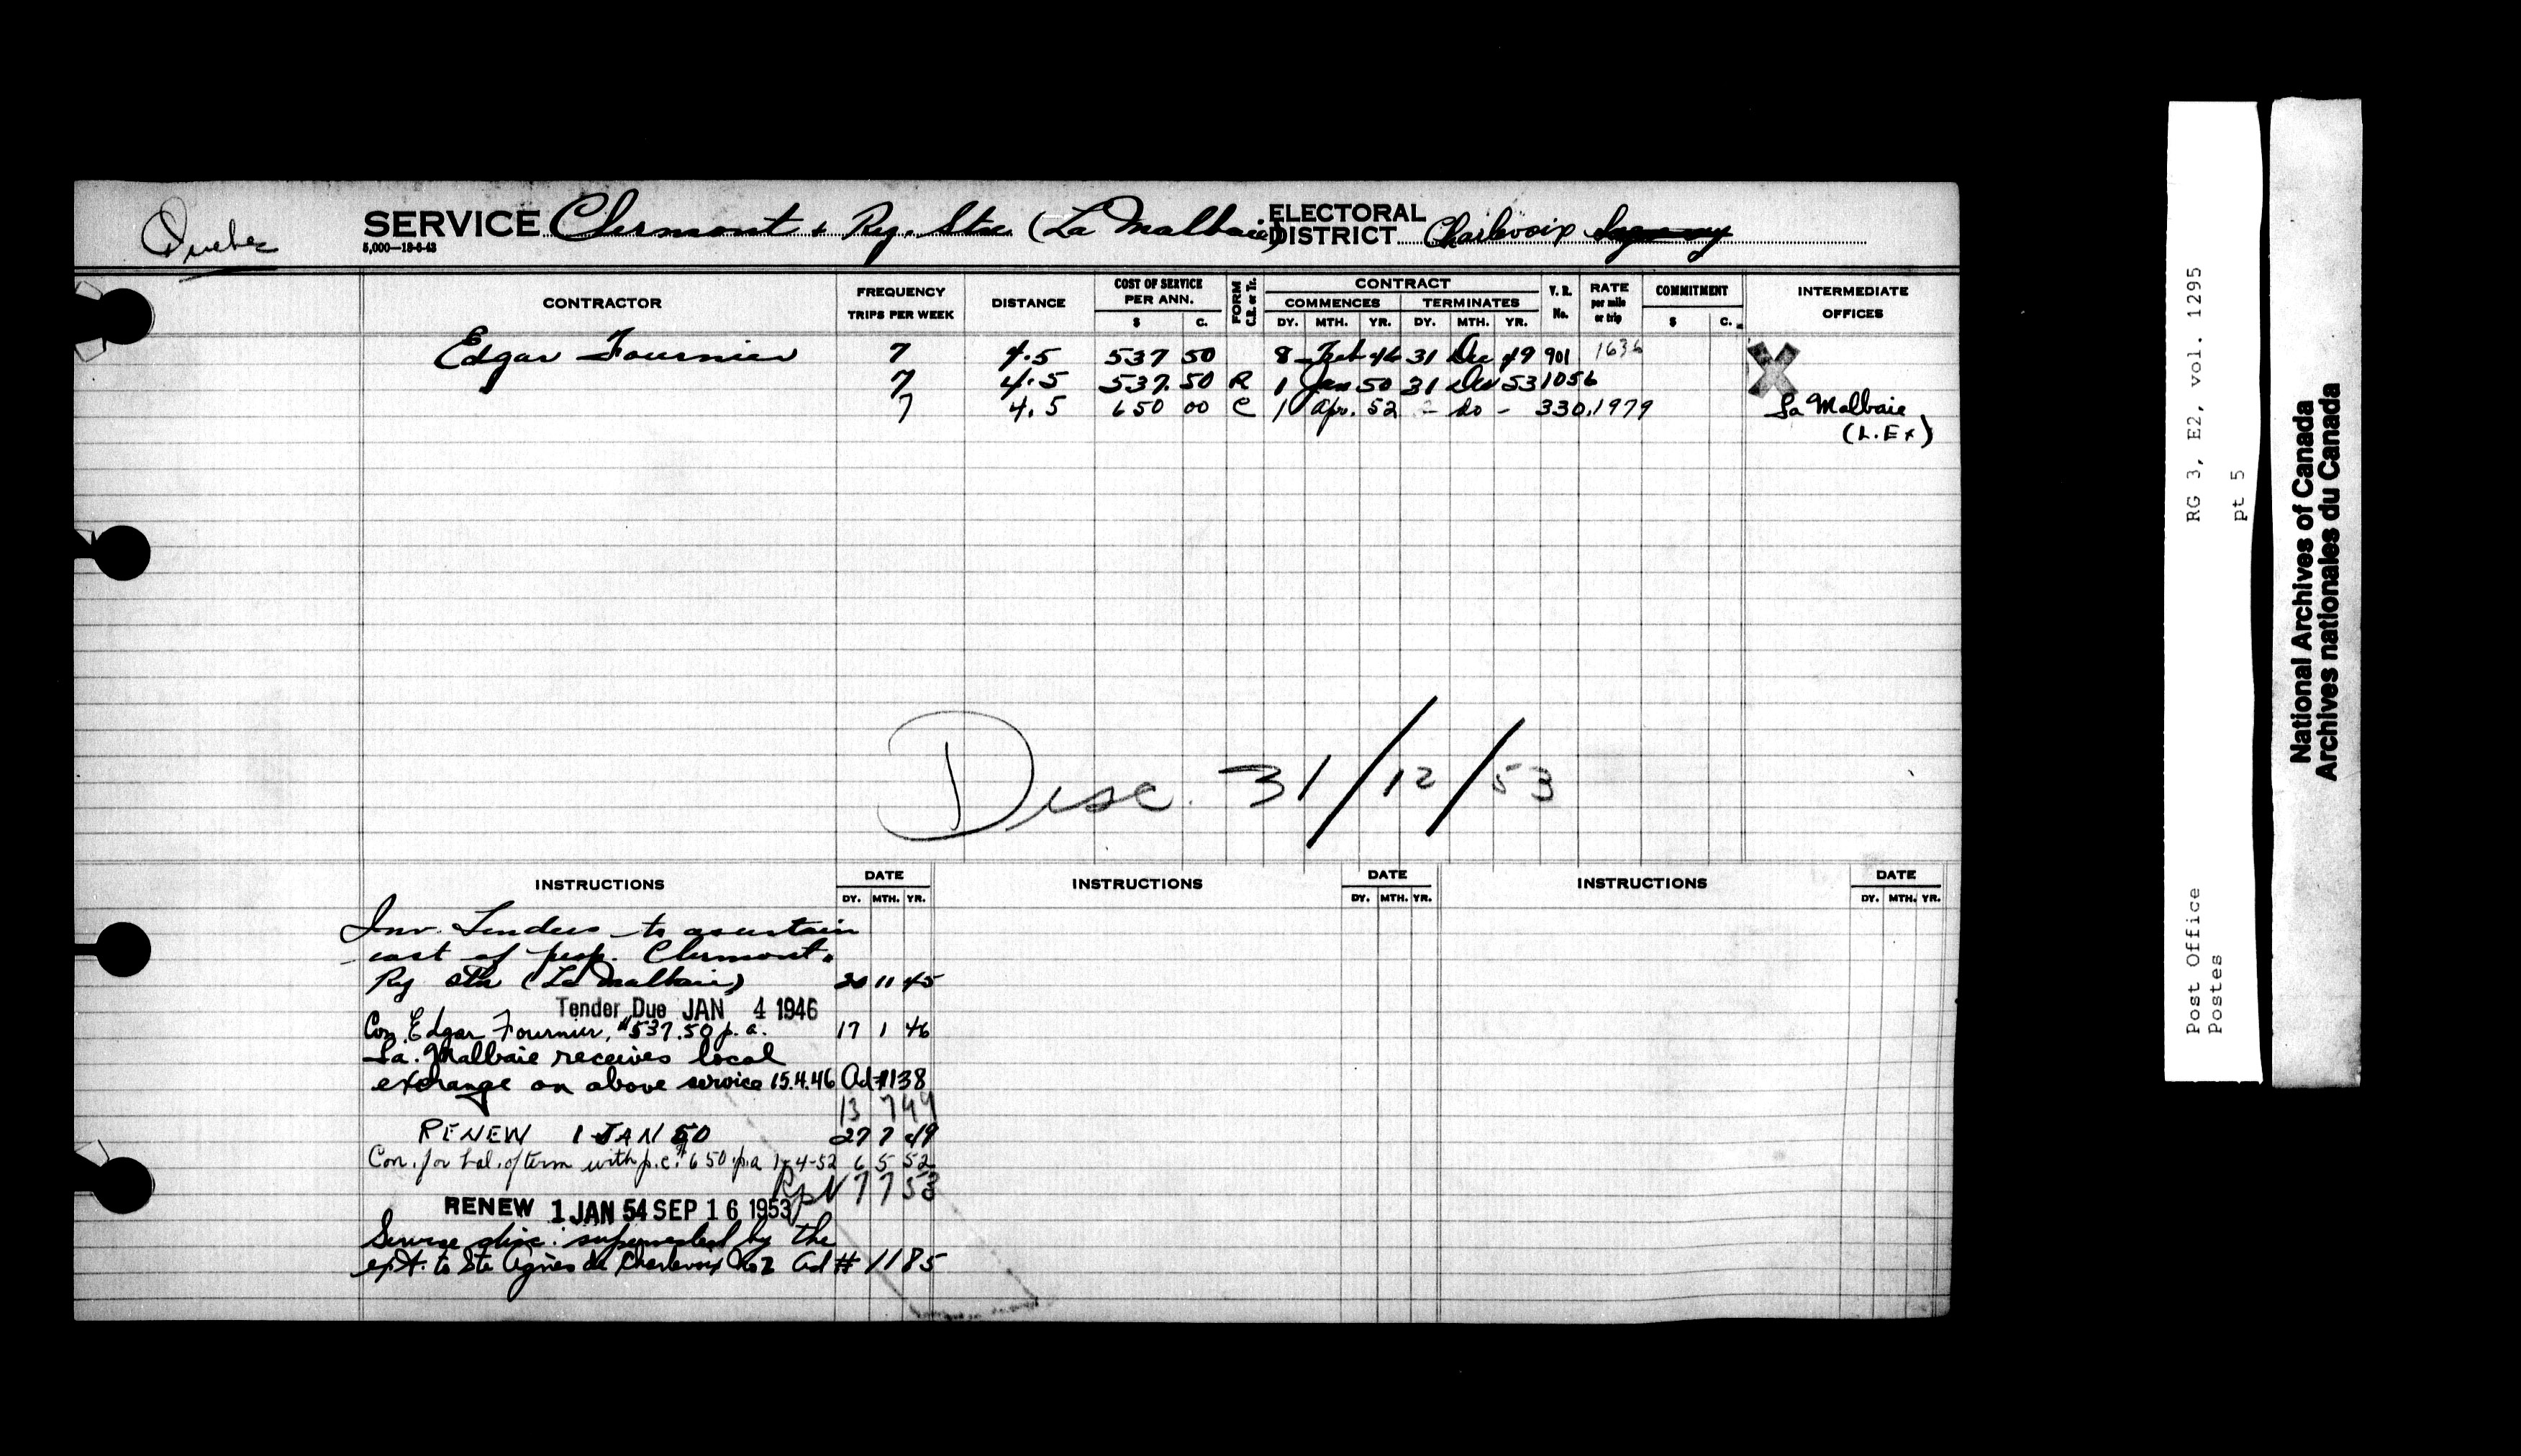 Quebec
SERVICE Clermont & Ry. Stn. (La Malbaie) ELECTORAL DISTRICT Charlevoix Saguenay
5,000—18-6-43
CONTRACTOR FREQUENCY TRIPS PER WEEK DISTANCE COST OF SERVICE PER ANN. $ C. FORM C.R. or Tr. CONTRACT COMMENCES DY. MTH. YR. TERMINATES DY. MTH. YR. V. R. No. RATE per mile or trip COMMITMENT $ C. INTERMEDIATE OFFICES
Edgar Fournier 7 4.5 537 50 8 Feb 46 31 Dec 49 901 1636 X
7 4.5 537.50 R 1 Jan 50 31 Dec 53 1056
7 4.5 650 00 C 1 Apr. 52 - do - 330 .1979 La Malbaie
(L.Ex)
Disc. 31/12/53
INSTRUCTIONS DATE DY. MTH. YR. INSTRUCTIONS DATE DY. MTH. YR. INSTRUCTIONS DATE DY. MTH. YR.
Inv. Tenders to ascertain
cost of prop. Clermont &
Ry Stn (La Malbaie) 20 11 45
Tender Due JAN 4 1946
Con. Edgar Fournier, $537.50 p.a. 17 1 46
La Malbaie receives local
exchange on above service 15.4.46 Ad #1138
13 7 49
RENEW 1 JAN 50 27 7 49
Con. for bal. of term with p.c. $650 p.a 1-4-52 6 5 52
RpN 7 7 53
RENEW 1 JAN 54 SEP 16 1953
Service disc. superseded by the
ext. to Ste Agnes de Charlevoix No 2 Ad # 1185
RG 3, E2, vol. 1295
pt 5
Post Office
Postes
National Archives of Canada
Archives nationales du Canada